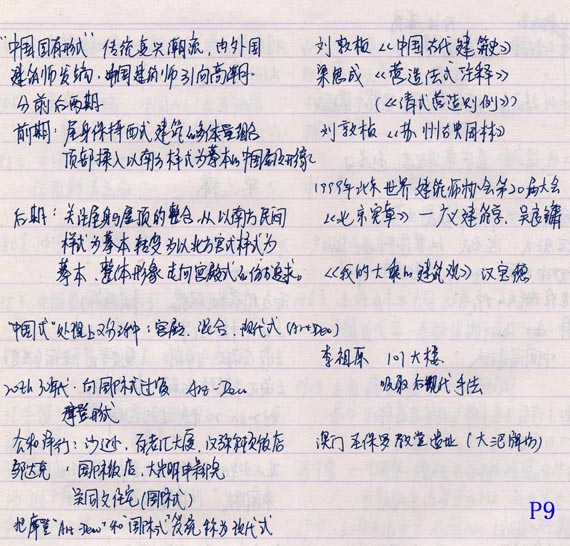 "中国固有形式" 传统复兴潮流，由外国
建筑师发端，中国建筑师引向高潮.
分前后两期
前期：屋身保持西式建筑的多体量组合
顶部揉入以南方样式为基本的中国屋顶形象
后期：关注屋身与屋顶的整合，从以南方民间
样式为基本转变为以北方宫式样式为
基本，整体形象走向宫殿式的仿古追求。
"中国式"处理上又分三种：宫殿、混合、现代式 (Art Deco)
20th 30年代. 向国际式过渡 Art-Deco
摩登形式
公和洋行：沙逊，百老汇大厦，汉弥尔登饭店
邬达克：国际饭店，大光明电影院
吴同文住宅(国际式)
把摩登"Art Deco"和"国际式"笼统称为现代式
刘敦桢《中国古代建筑史》
梁思成《营造法式注释》
(《清式营造则例》)
刘敦桢《苏州古典园林》
1999年北京世界建筑师协会第20届大会
《北京宪章》—广义建筑学. 吴良镛
《我的大乘的建筑观》汉宝德
李祖原 101大楼
吸取后现代手法
澳门圣保罗教堂遗址(大三巴牌坊)
P9